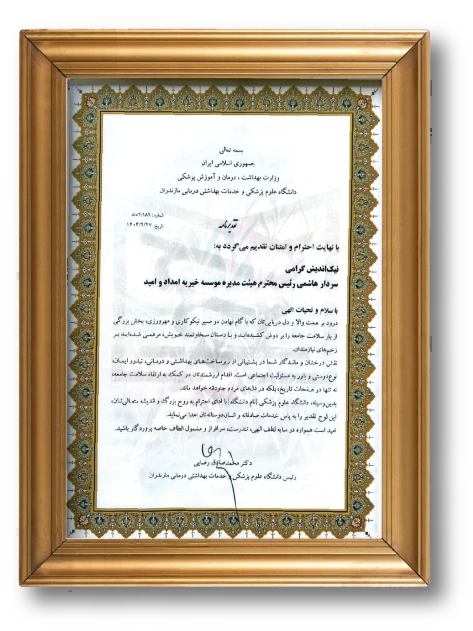 بسمه تعالی
جمهوری اسلامی ایران
وزارت بهداشت ، درمان و آموزش پزشکی
دانشگاه علوم پزشکی و خدمات بهداشتی درمانی مازندران
شماره:
تاریخ: ۱۴۰۴/۲/۲۷
تقدیرنامه
با نهایت احترام و امتنان تقدیم می گردد به:
نیک‌اندیش گرامی
سردار هاشمی رئیس محترم هیئت مدیره موسسه خیریه امداد و امید
با سلام و تحیات الهی
درود بر همت والا و دل دریایی‌تان که با گام نهادن در مسیر نیکوکاری و مهرورزی، بخش بزرگی
از بار سلامت جامعه را بر دوش کشیده‌اید و با دستان سخاوتمند خویش، مرهمی شده‌اید بر
زخم‌های نیازمندان.
نقش درخشان و ماندگار شما در پشتیبانی از زیرساخت‌های بهداشتی و درمانی، تبلور ایمان،
نوع‌دوستی و باور به مسئولیت اجتماعی است. اقدام ارزشمندتان در کمک به ارتقاء سلامت جامعه،
نه تنها در صفحات تاریخ، بلکه در دل‌های مردم جاودانه خواهد ماند.
بدین‌وسیله، دانشگاه علوم پزشکی [نام دانشگاه] با ادای احترام به روح بزرگ و اندیشه متعالی‌تان،
این لوح تقدیر را به پاس خدمات صادقانه و انسان‌دوستانه‌تان اهدا می‌نماید.
امید است همواره در سایه لطف الهی، تندرست، سرافراز و مشمول الطاف خاصه پروردگار باشید.
دکتر محمدصادق رضایی
رئیس دانشگاه علوم پزشکی و خدمات بهداشتی درمانی مازندران